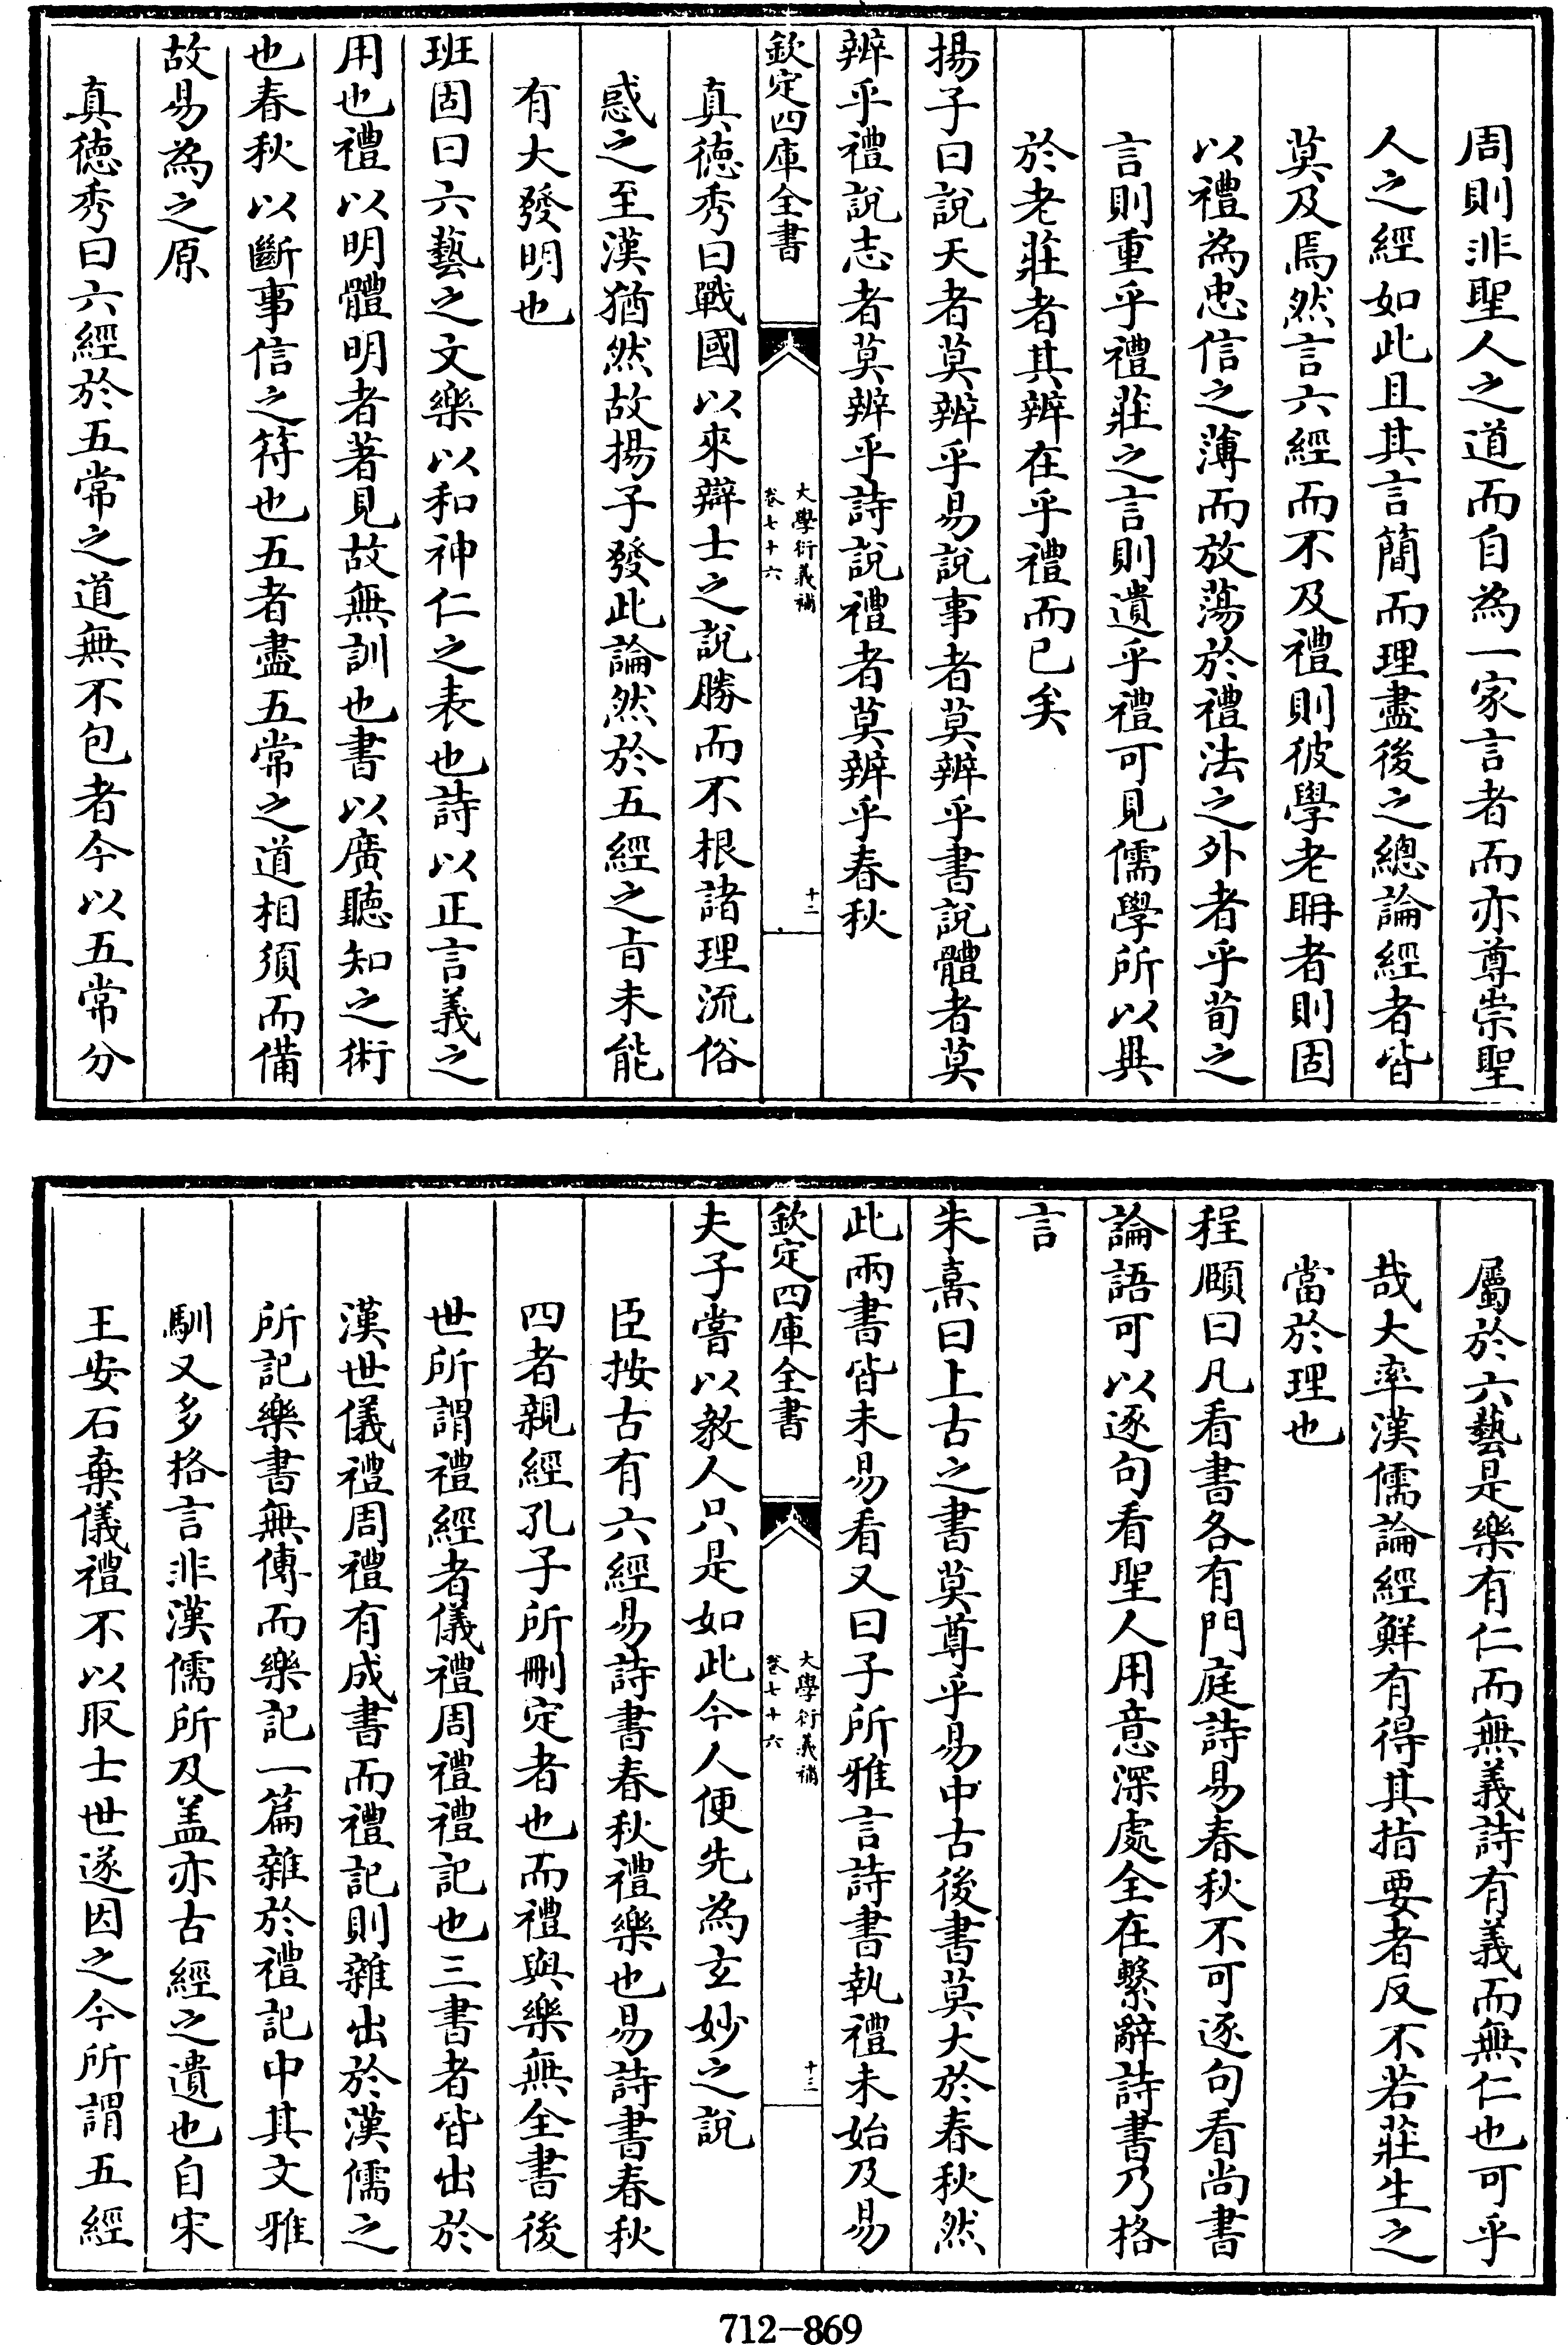 周則非聖人之道而自為一家言者而亦尊崇聖
人之經如此且其言簡而理盡後之總論經者皆
莫及焉然言六經而不及禮則彼學老耼者則固
以禮為忠信之薄而放蕩於禮法之外者乎荀之
言則重乎禮莊之言則遺乎禮可見儒學所以異
於老莊者其辨在乎禮而已矣
揚子曰說天者莫辨乎易說事者莫辨乎書說體者莫
辨乎禮說志者莫辨乎詩說禮者莫辨乎春秋
欽定四庫全書
大學衍義補
卷七十六
十二
真德秀曰戰國以來辯士之說勝而不根諸理流俗
惑之至漢猶然故揚子發此論然於五經之㫖未能
有大發明也
班固曰六藝之文樂以和神仁之表也詩以正言義之
用也禮以明體明者著見故無訓也書以廣聽知之術
也春秋以斷事信之符也五者盡五常之道相須而備
故易為之原
真徳秀曰六經於五常之道無不包者今以五常分
屬於六藝是樂有仁而無義詩有義而無仁也可乎
哉大率漢儒論經鮮有得其指要者反不若莊生之
當於理也
程頤曰凡看書各有門庭詩易春秋不可逐句看尚書
論語可以逐句看聖人用意深處全在繫辭詩書乃格
言
朱熹曰上古之書莫尊乎易中古後書莫大於春秋然
此兩書皆未易看又曰子所雅言詩書執禮未始及易
欽定四庫全書
大學衍義補
卷七十六
十三
夫子嘗以教人只是如此今人便先為玄妙之説
臣按古有六經易詩書春秋禮樂也易詩書春秋
四者親經孔子所刪定者也而禮與樂無全書後
世所謂禮經者儀禮周禮禮記也三書者皆出於
漢世儀禮周禮有成書而禮記則雜出於漢儒之
所記樂書無傳而樂記一篇雜於禮記中其文雅
馴又多格言非漢儒所及盖亦古經之遺也自宋
王安石棄儀禮不以取士世遂因之今所謂五經
712-869